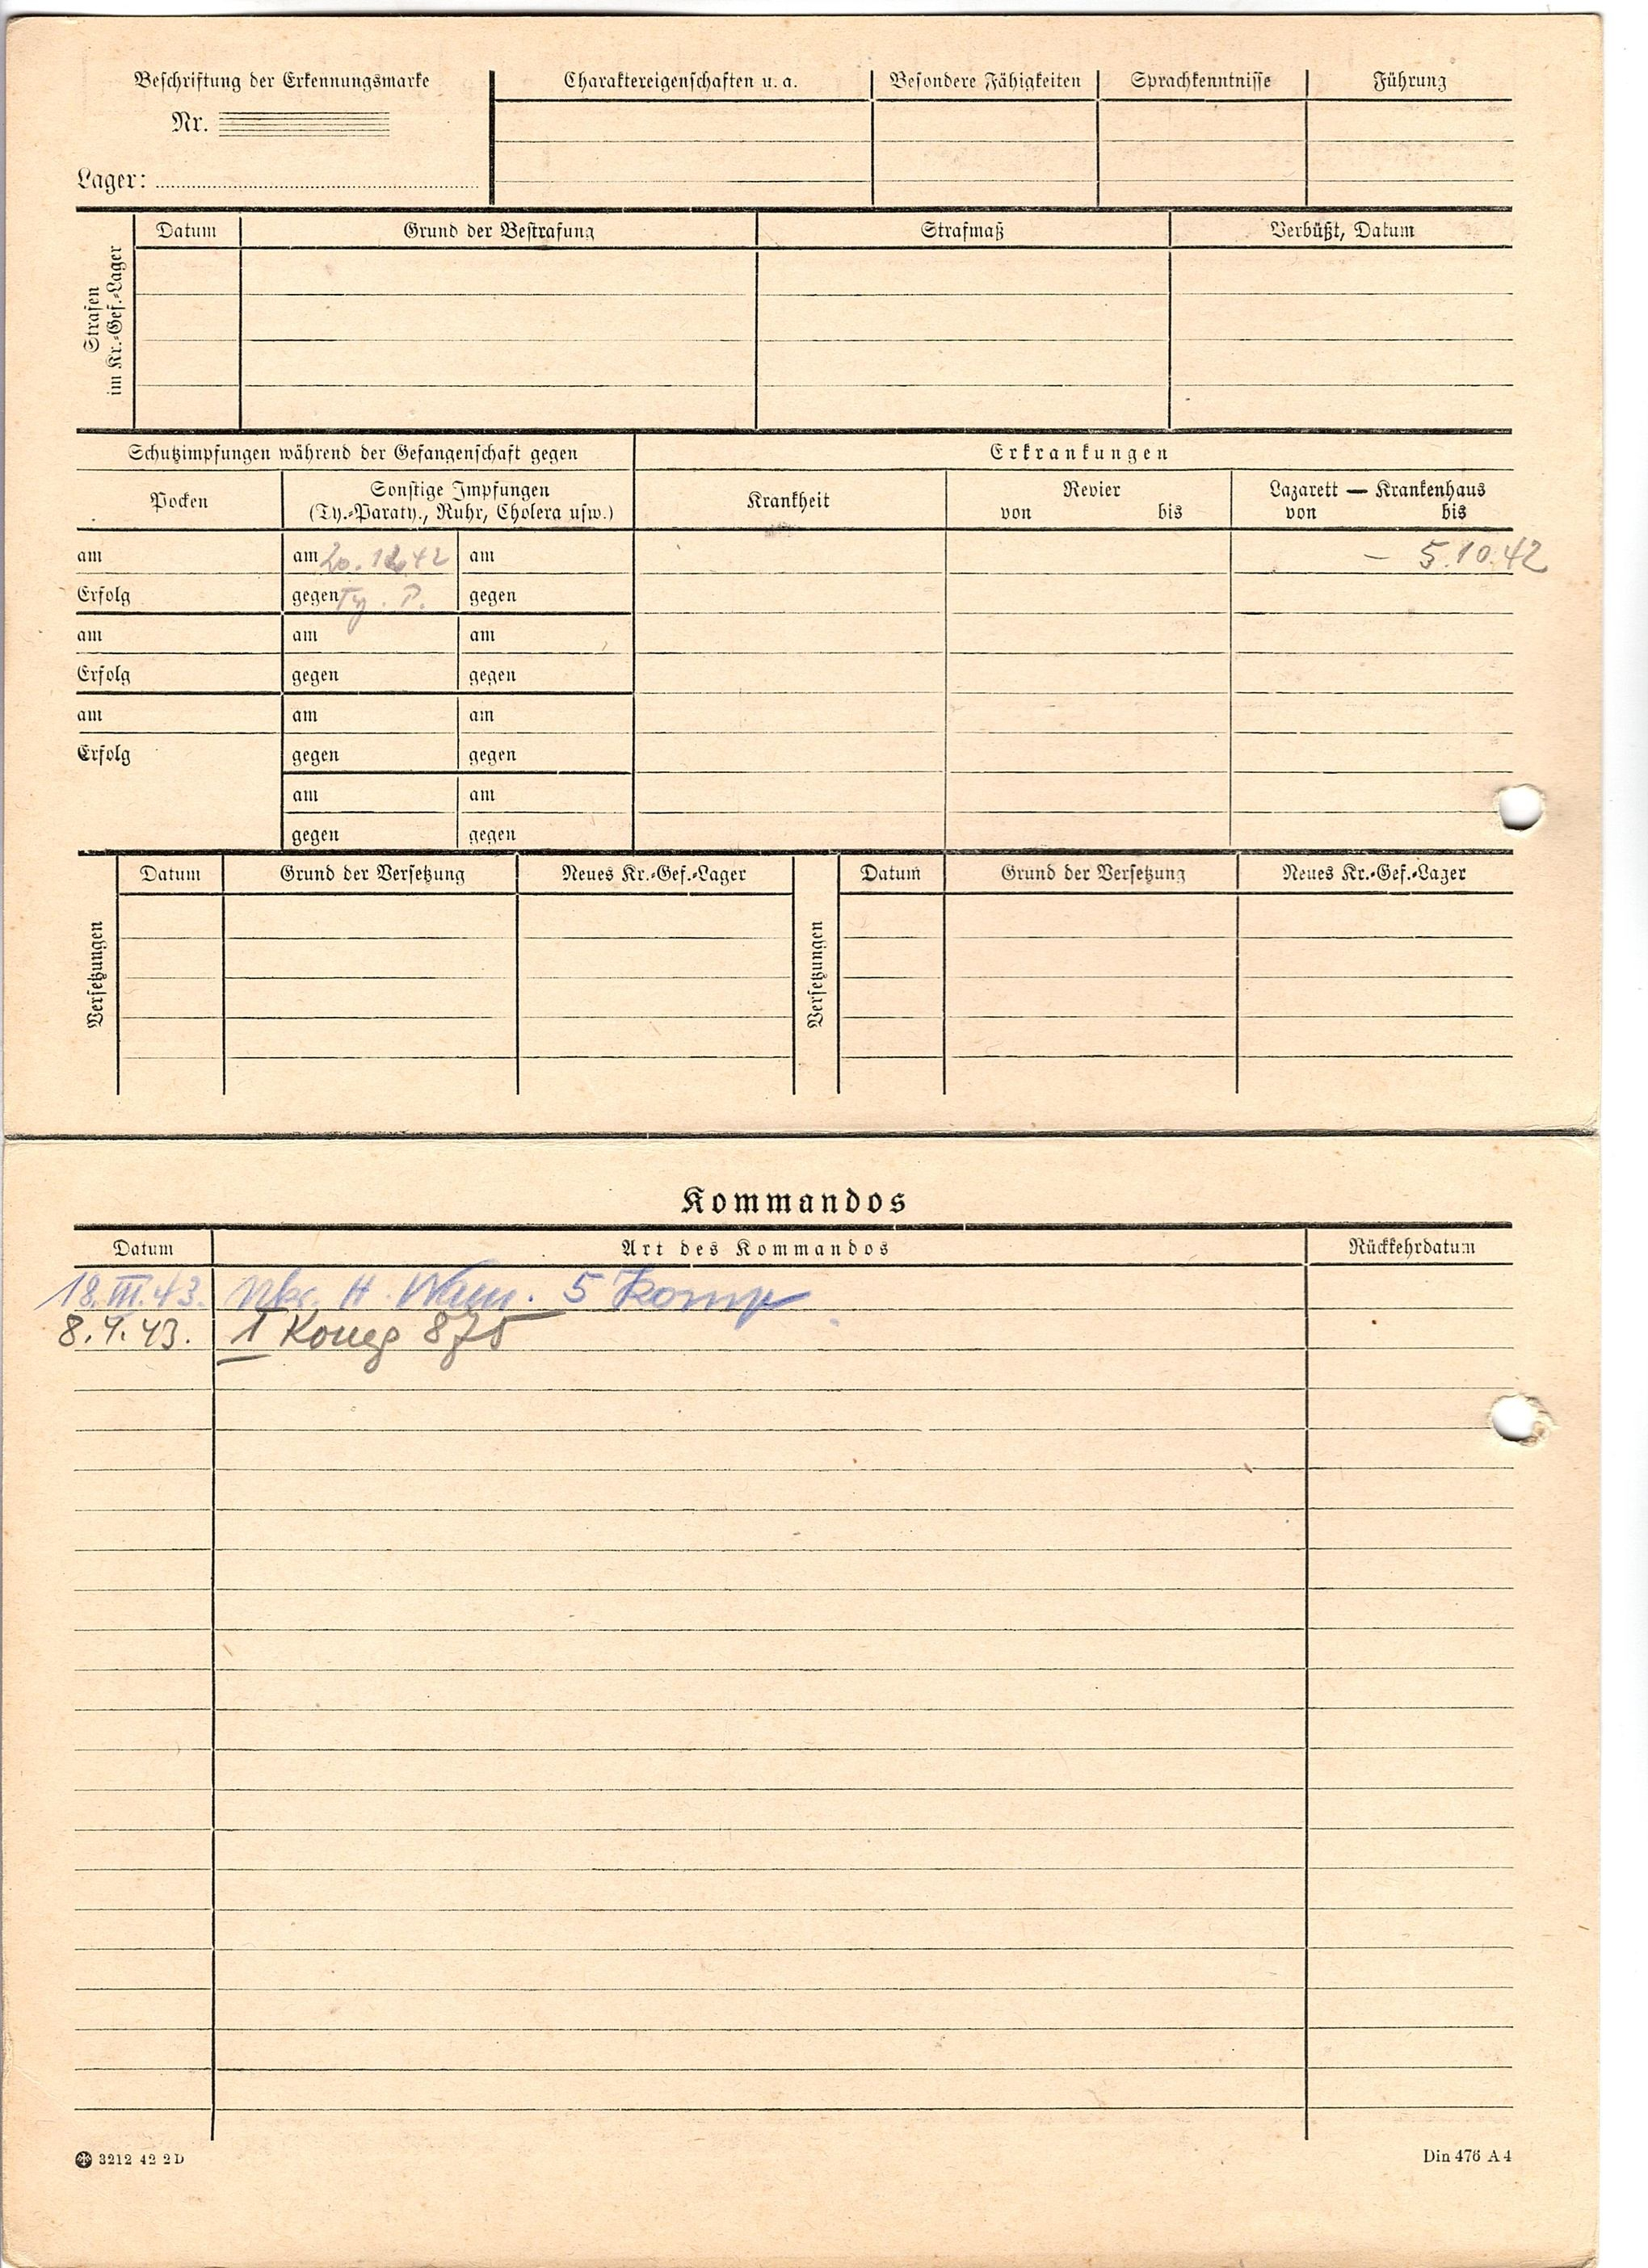 Beschriftung der Erkennungsmarke
Nr.
Lager:
Charaktereigenschaften u. a.
Besondere Fähigkeiten
Sprachkenntnisse
Führung
Strafen
im Kr.-Gef.-Lager
Datum
Grund der Bestrafung
Strafmaß
Verbüßt, Datum
Schutzimpfungen während der Gefangenschaft gegen
Erkrankungen
Pocken
Sonstige Impfungen
(Ty.-Paraty., Ruhr, Cholera usw.)
Krankheit
Revier
von bis
Lazarett — Krankenhaus
von bis
am am 20. 12. 42 am – 5.10.42
Erfolg gegen Ty. P. gegen
am am am
Erfolg gegen gegen
am am am
Erfolg gegen gegen
am am
gegen gegen
Versetzungen
Datum Grund der Versetzung Neues Kr.-Gef.-Lager
Versetzungen
Datum Grund der Versetzung Neues Kr.-Gef.-Lager
Kommandos
Datum Art des Kommandos Rückkehrdatum
18. III. 43. H. 5 Komp
8. 4. 43. 1 Komp 875
3212 42 2 D
Din 476 A 4